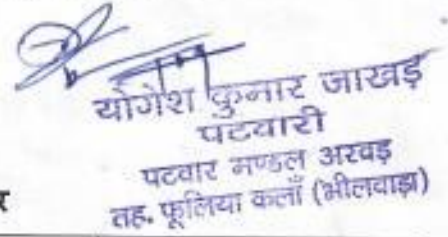 योगेश कुमार जाखड़
पटवारी
पटवार मण्डल अरवड़
तह. फूलिया कलाँ (भीलवाड़ा)